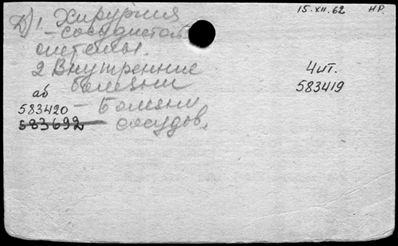 Д) 1. Хирургия
15.XII.62 НР.
- сосудистой
системы.
2 Внутренние
болезни
4 ит.
583419
аб
583420 - Болезни
583692 сосудов.